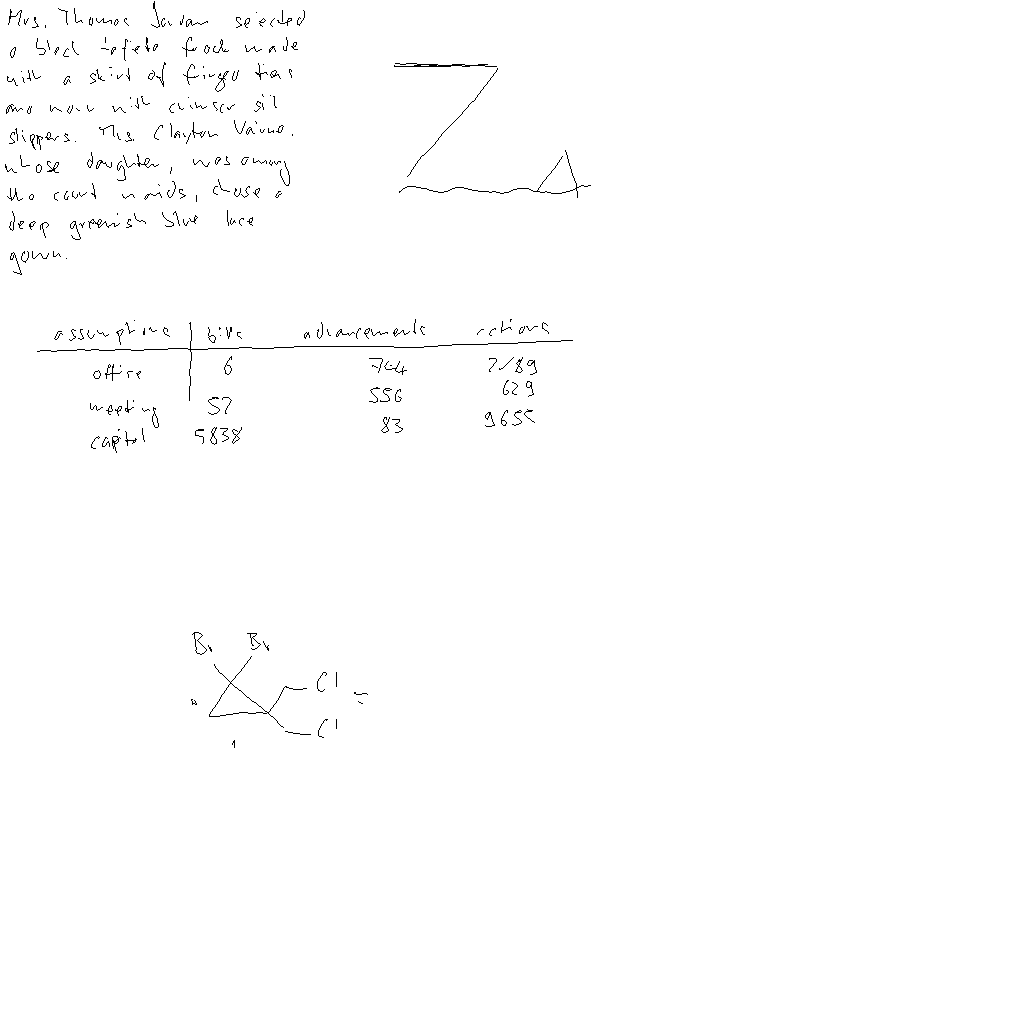 Mrs. Thomas Jordan selected
a black tafeta frock made
with a skirt of fringe tiers
and worn with crimson silk
slippers. Mrs. Clayton
whose daughter, was among
the court maids, chose a
deep greenish blue lace
gown.
assumptions bits advancements actions
office 6 744
meeting 57 556 629
capitol 5838 83 9655
Br Br
Cl
Cl